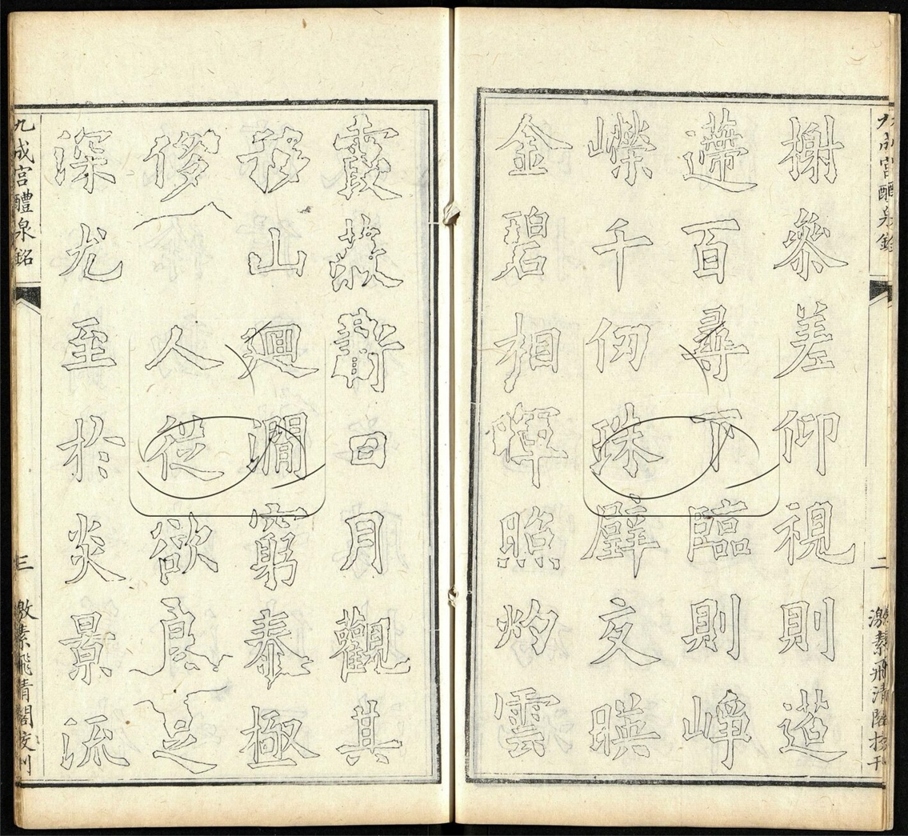 九成宮醴泉銘 二 激素飛清閣校刊
榭參差仰視則迢
遰百尋下臨則崢
嶸千仞珠璧交暎
金碧相暉照灼雲
霞蔽虧日月觀其
移山迴澗窮泰極
侈人從欲良足
深尤至於炎景流
九成宮醴泉銘 三 激素飛清閣校刊